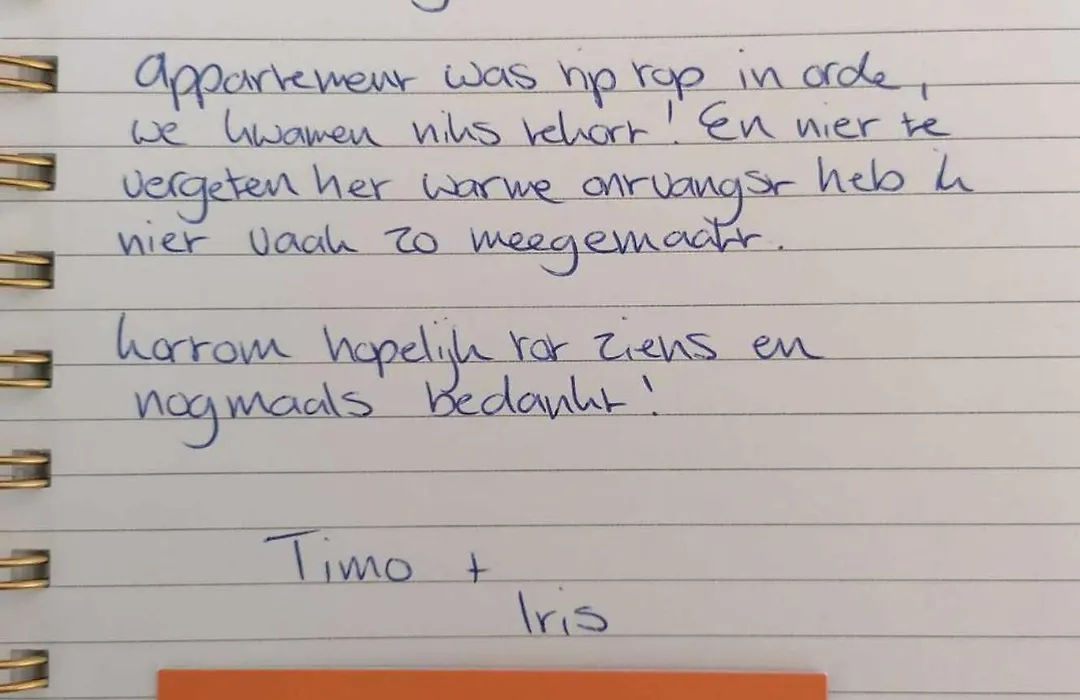 Appartement was tip top in orde,
we kwamen niks tekort! En niet te
vergeten het warme ontvangst heb ik
niet vaak zo meegemaakt.
kortom hopelijk tot ziens en
nogmaals bedankt!
Timo +
Iris